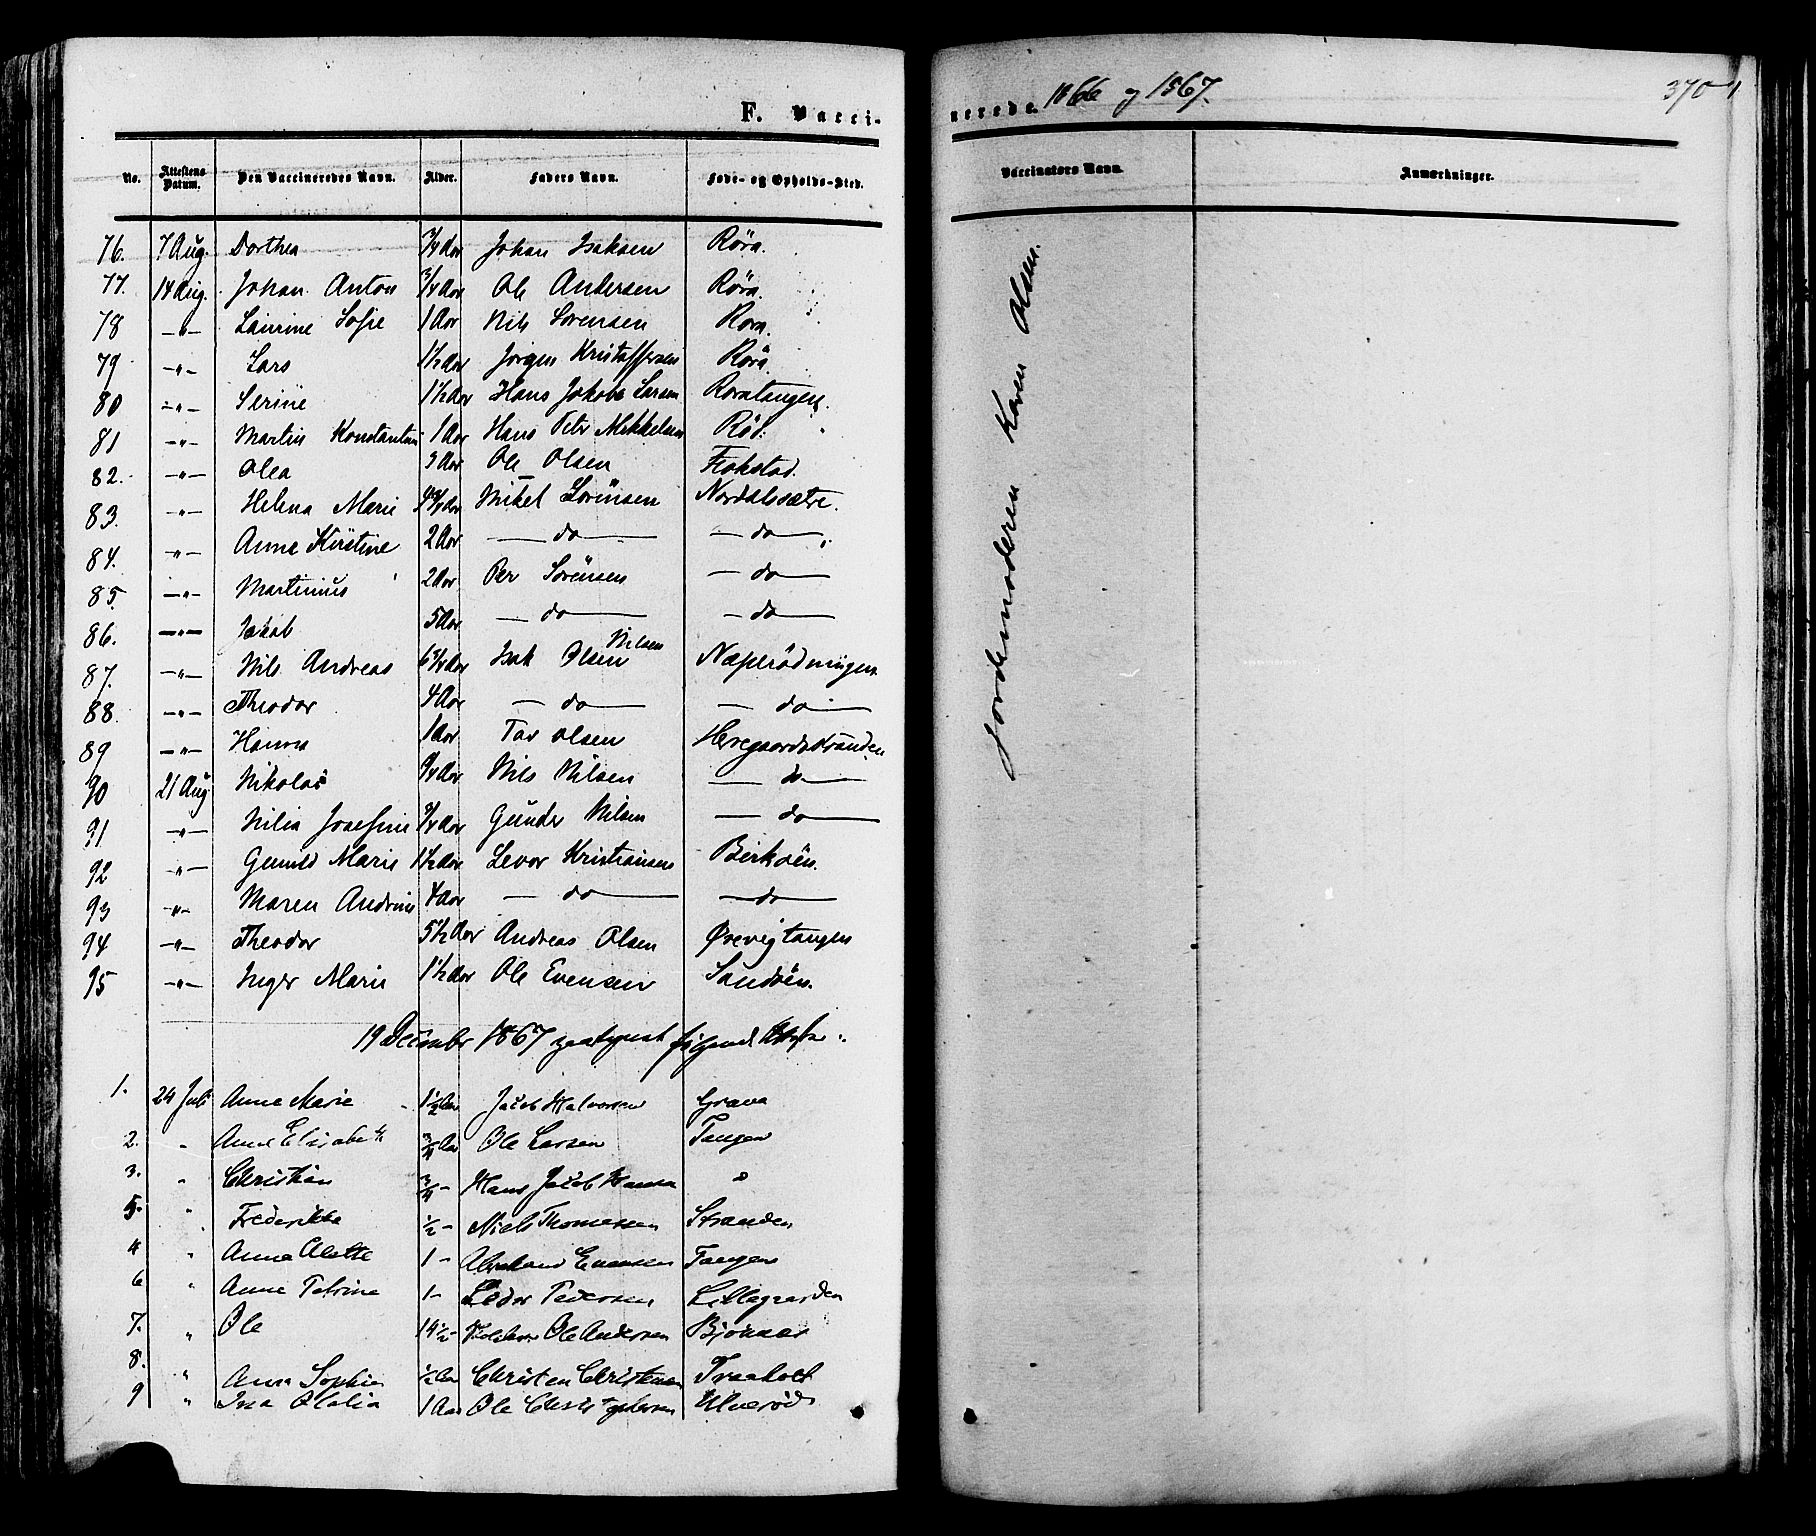 F. Vacci-
nerede. 1866 og 1867.
370
No. Attestens Datum. Den Vaccineredes Navn. Alder. Faders Navn. Føde- og Opholds-Sted.
Vaccinators Navn. Anmærkninger.
76. 7 Aug. Dorthea 3/4 Aar Johan Isaksen Röra.
77. 14 Aug. Johan Anton 3/4 Aar Ole Andersen Röra.
78 -"- Laurine Sofie 1 Aar Nils Sorensen Rora.
79 -"- Lars 1 1/2 Aar Jorgen Kristoffersen Rörа.
80 -"- Serine 1 1/2 Aar Hans Jakob Larsen Roratangen.
81 -"- Martin Konstantin 1 Aar Hans Peter Mikkelsen Röd.
82. -"- Olea 3 Aar Ole Olsen Fokstad.
83. -"- Helena Marie Aar Mikel Sörensen Nordalsætre.
84. -"- Anne Kirstine 2 Aar — do — — do —
85. -"- Martinius 2 Aar Per Sörensen — do —
86. -"- Jakob 5 Aar — do — — do —
87. -"- Nils Andreas 6 3/4 Aar Isak Olsen Nilsen Næperödningen
88. -"- Theodor 4 Aar — do — — do —
89 -"- Hanna 1 Aar Tov Olsen Herregaardsstranden
90 21 Aug Nikolai 3/4 Aar Nils Nilsen — do —
91 -"- Nilia Josefine 3/4 Aar Gunder Nilsen — do —
92 -"- Gunild Marie 1 1/2 Aar Levor Kristiansen Birköen.
93 -"- Maren Andrine 4 Aar — do — — do —
94 -"- Theodor 5 1/2 Aar Andreas Olsen Ørevigtangen
95 -"- Inger Marie 1 1/2 Aar Ole Evensen Sandöen.
Jordemoderen Karen Olsen.
19 December 1867 følgende
1. 24 Juli Anne Marie 1 1/2 Aar Jacob Halvorsen Grava
2. " Anne Elisabeth 3/4 Aar Ole Larsen Tangen
3. " Christian 3/4 - Hans Jacob Hansen "
5. " Frederikke 1/2 - Niels Thomassen Stranden
4 " Anne Alette 1 - Abraham Evensen Tangen
6 " Anne Petrine 1 - Peder Pedersen Lillegaarden
7. " Ole 14 1/2 - Ole Andersen Bjønnæs
8. " Anne Sophie 1/2 Aar Christen Christensen Traaholt
9 " Ina Olalia 1 Aar Ole Christophersen Ulverød